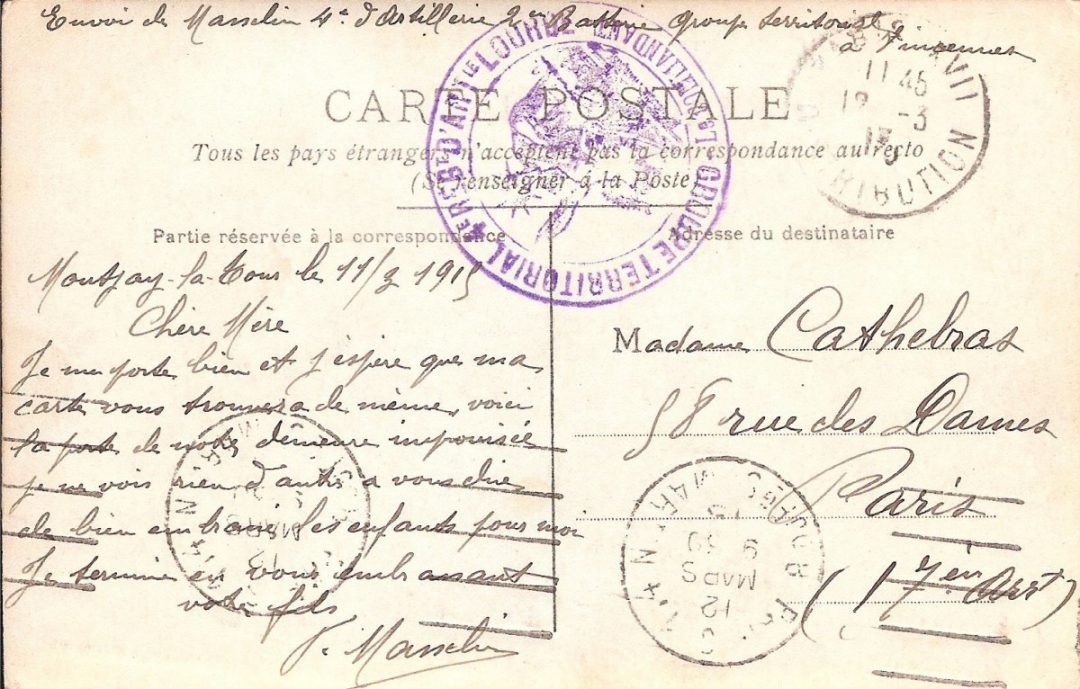 Envoi de Masselin 4e d'Artillerie 2em Batterie Groupe territorial
à Vincennes
CARTE POSTALE
Tous les pays étrangers n'acceptent pas la correspondance au recto
(Se renseigner à la Poste)
Partie réservée à la correspondance
Montjay-la-Tour le 11/3 1915
Chère Mère
Je me porte bien et j'espère que ma
carte vous trouvera de même, voici
la porte de notre demeure improvisée
je ne vois rien d'autre a vous dire
de bien embrasser les enfants pour moi
Je termine en vous embrassant
votre fils
Masselin
Adresse du destinataire
Madame Cathebras
58 rue des Dames
Paris
(17em Arrt)
4E RGT D'ARTIE LOURDE
GROUPE TERRITORIAL
XVII
11 45
12 -3
15
DISTRIBUTION
12
MARS
9 30
15
MARS